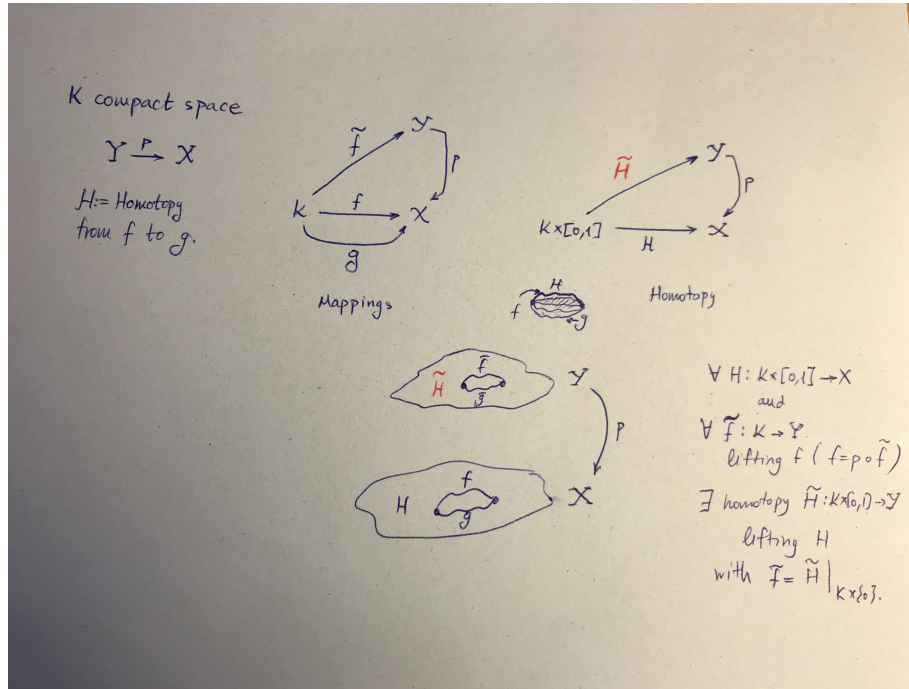 K compact space
Y P→ X
H:= Homotopy
from f to g.
f̃
Y
P
K
f
X
g
Mappings
H̃
Y
P
K×[0,1]
H
X
Homotopy
H
f
g
f̃
H̃
g̃
Y
P
f
H
g
X
∀ H: K×[0,1]→X
and
∀ f̃: K→Y.
lifting f ( f=p∘f̃ )
∃ homotopy H̃: K×[0,1]→Y
lifting H
with f̃ = H̃ |K×{0}.